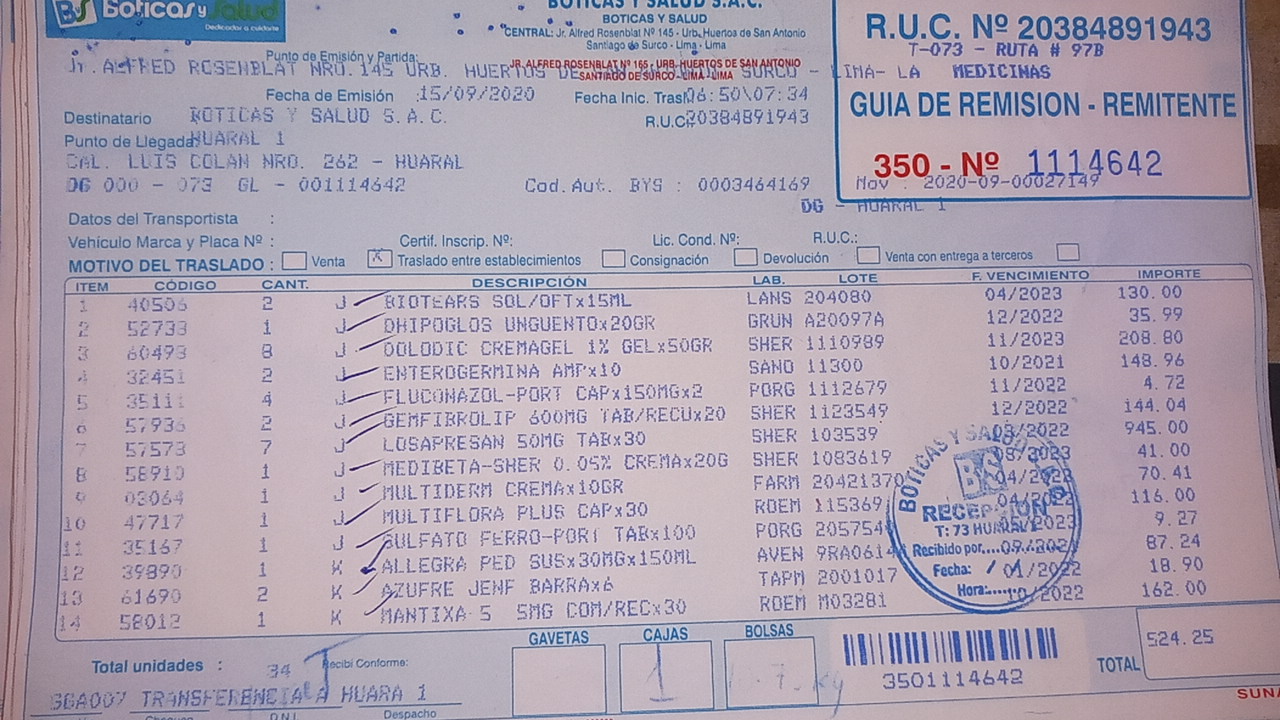 BS Boticas y Salud
Dedicados a cuidarte
BOTICAS Y SALUD S.A.C.
BOTICAS Y SALUD
CENTRAL: Jr. Alfred Rosenblat Nº 145 - Urb. Huertos de San Antonio
Santiago de Surco - Lima - Lima
R.U.C. Nº 20384891943
T-073 - RUTA # 97B
MEDICINAS
GUIA DE REMISION - REMITENTE
350 - Nº 1114642
Mov : 2020-09-00027149
DG - HUARAL 1
Punto de Emisión y Partida:
Jr. ALFRED ROSENBLAT NRO. 145 URB. HUERTOS DE SURCO - LIMA- LA
JR. ALFRED ROSENBLAT Nº 165 - URB. HUERTOS DE SAN ANTONIO
SANTIAGO DE SURCO - LIMA - LIMA
Fecha de Emisión :15/09/2020 Fecha Inic. Trasl. 06:50\07:34
Destinatario BOTICAS Y SALUD S.A.C. R.U.C. 20384891943
Punto de Llegada HUARAL 1
CAL. LUIS COLAN NRO. 262 - HUARAL
DG 000 - 073 GL - 001114642 Cod.Aut. BYS : 0003464169
Datos del Transportista :
Vehículo Marca y Placa Nº : Certif. Inscrip. Nº: Lic. Cond. Nº: R.U.C.:
MOTIVO DEL TRASLADO : Venta X Traslado entre establecimientos Consignación Devolución Venta con entrega a terceros
ITEM CÓDIGO CANT. DESCRIPCIÓN LAB. LOTE F. VENCIMIENTO IMPORTE
1 40506 2 J BIOTEARS SOL/OFTx15ML LANS 204080 04/2023 130.00
2 52733 1 J DHIPOGLOS UNGUENTOx20GR GRUN A20097A 12/2022 35.99
3 60493 8 J DOLODIC CREMAGEL 1% GELx50GR SHER 1110989 11/2023 208.80
4 32451 2 J ENTEROGERMINA AMPx10 SANO 11300 10/2021 148.96
5 35111 4 J FLUCONAZOL-PORT CAPx150MGx2 PORG 1112679 11/2022 4.72
6 57936 2 J GEMFIBROLIP 600MG TAB/RECUx20 SHER 1123549 12/2022 144.04
7 57573 7 J LOSAPRESAN 50MG TABx30 SHER 103539 03/2022 945.00
8 58910 1 J MEDIBETA-SHER 0.05% CREMAx20G SHER 1083619 08/2023 41.00
9 03064 1 J MULTIDERM CREMAx10GR FARM 20421370 04/2022 70.41
10 47717 1 J MULTIFLORA PLUS CAPx30 ROEM 115369 04/2022 116.00
11 35167 1 J SULFATO FERRO-PORT TABx100 PORG 205754 05/2023 9.27
12 39890 1 K ALLEGRA PED SUSx30MGx150ML AVEN 9RA0614 09/202 87.24
13 61690 2 K AZUFRE JENF BARRAx6 TAPM 2001017 01/2022 18.90
14 58012 1 K MANTIXA 5 5MG COM/RECx30 ROEM M03281 10/2022 162.00
BOTICAS Y SALUD
BS
RECEPCION
T: 73 HUARAL
Recibido por....
Fecha: / /
Hora:......
Total unidades : 34 Recibí Conforme:
GAVETAS CAJAS BOLSAS
1
3501114642
TOTAL 524.25
GGA007 TRANSFERENCIA A HUARA 1
D.N.I. Despacho
SUNA